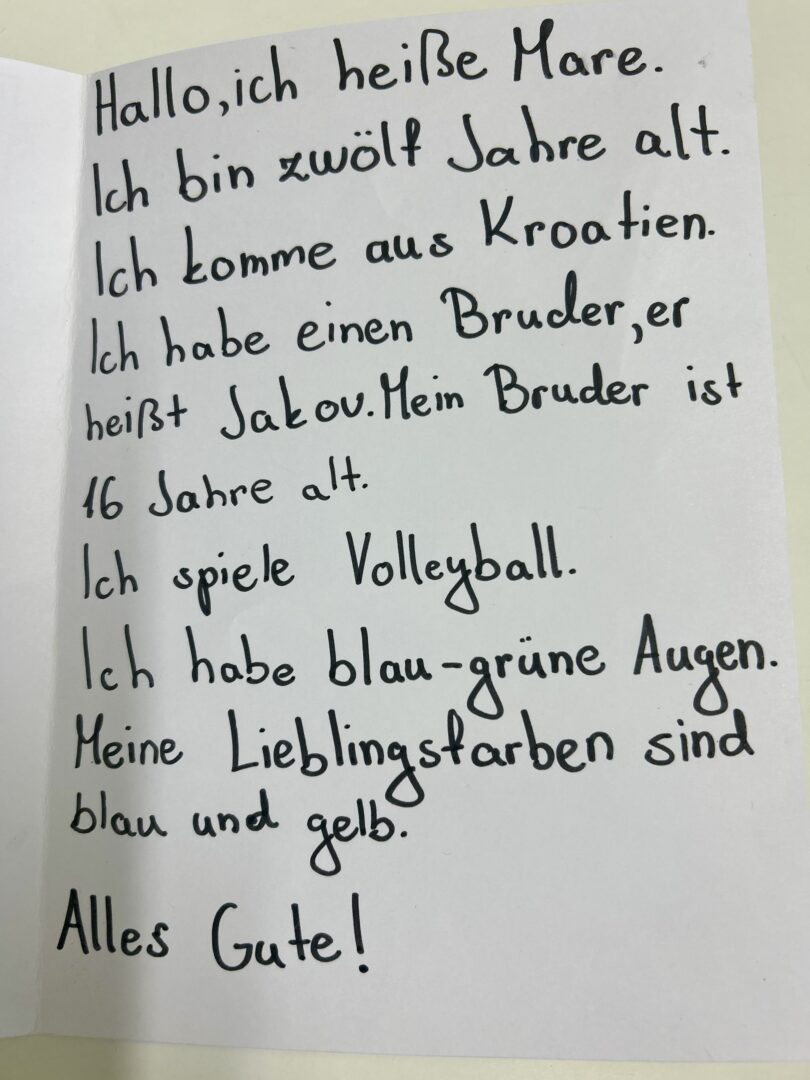 Hallo, ich heiße Mare.
Ich bin zwölf Jahre alt.
Ich komme aus Kroatien.
Ich habe einen Bruder, er
heißt Jakov. Mein Bruder ist
16 Jahre alt.
Ich spiele Volleyball.
Ich habe blau-grüne Augen.
Meine Lieblingsfarben sind
blau und gelb.
Alles Gute!